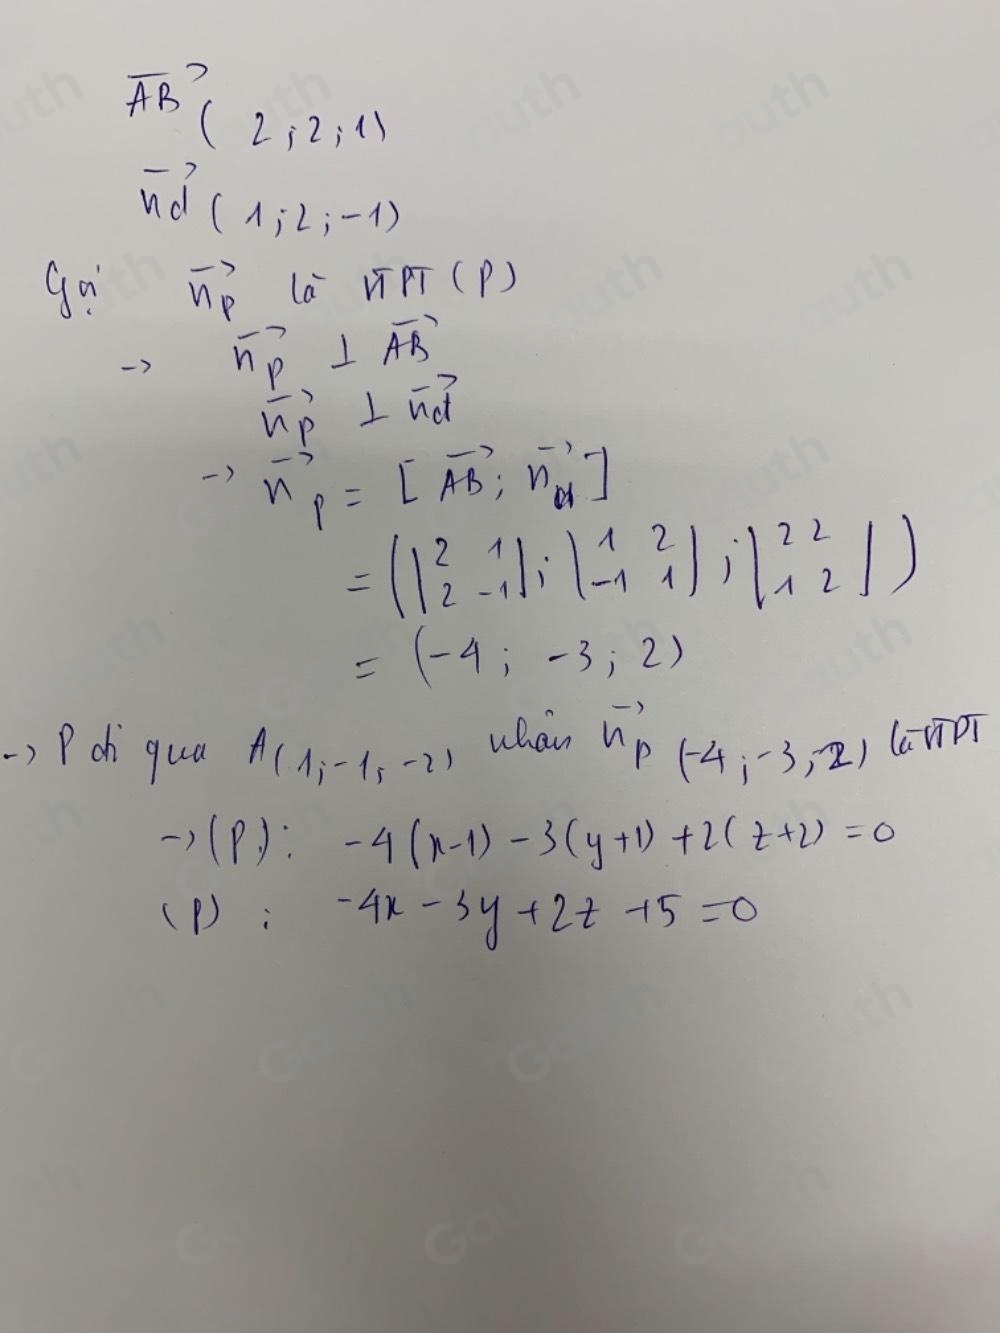 AB⃗ ( 2 ; 2 ; 1)
n⃗d ( 1 ; 2 ; -1)
Gọi n⃗p là VTPT (P)
-> n⃗p ⊥ AB⃗
n⃗p ⊥ n⃗d
-> n⃗p = [ AB⃗ ; n⃗d ]
= ( |2 1; 2 -1| ; |1 2; -1 1| ; |2 2; 1 2| )
= (-4 ; -3 ; 2)
-> P đi qua A(1;-1;-2) nhân n⃗p (-4;-3;2) là VTPT
-> (P): -4(x-1) -3(y+1) +2(z+2) = 0
(P) : -4x -3y +2z +5 =0